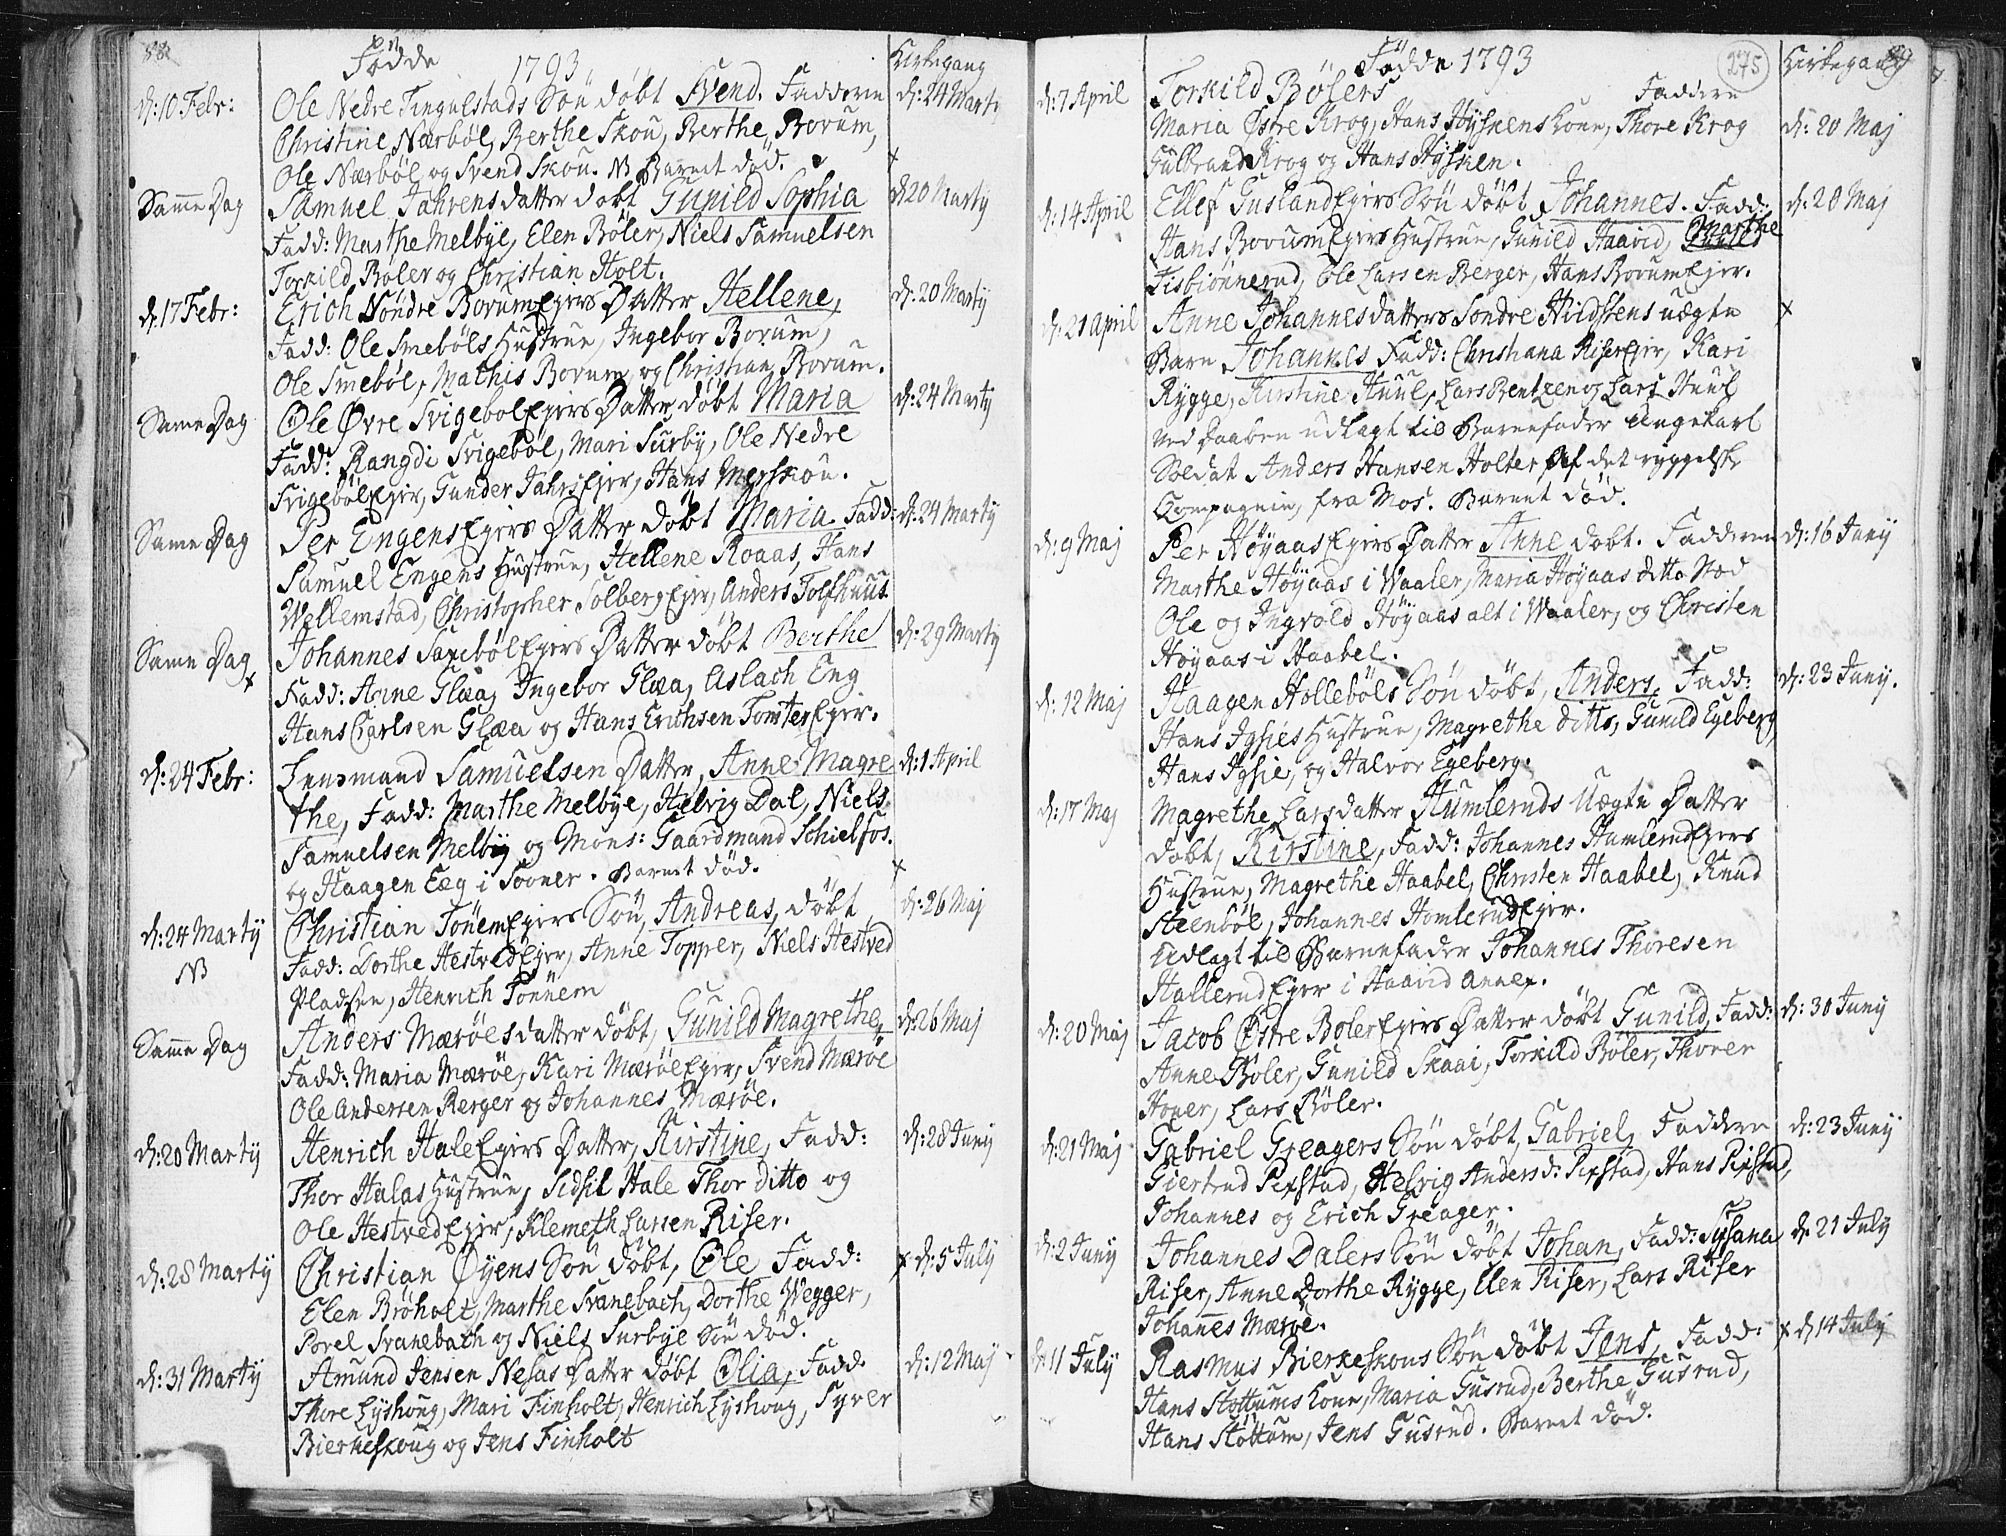 Födde 1793 Kirkegang
d: 10 Febr: Ole Nedre Tingulstads Sön döbt Svend. Faddere d: 24 Marti
Christine Nærböl, Berthe Skou, Berthe Borum,
Ole Nærböl og Svend Skou. NB Barnet död. x
Samme Dag Samuel Jahrens datter döbt Gunild Sophia d 20 Marty
Fadd: Marthe Melbye, Elen Böler, Niels Samuelsen
Torkild Böler og Christian Holt.
d: 17 Febr: Erich Nöndre Borum Egirs Datter Hellene, d: 20 Marty
Fadd: Ole Smeböls Hustrue, Ingebor Borum,
Ole Smeböl, Mathis Borum og Christian Borum.
Same Dag Ole Øvre Svigeböl Egirs Datter döbt Maria d: 24 Marty
Fadd: Rangdi Svigeböl, Mari Surby, Ole Nedre
Svigeböl Egir, Gunder Jahrs Egir, Hans Morskou.
Same Dag Per Engens Egirs Datter döbt Maria. Fadd: d: 24 Marty
Samuel Engens Hustrue, Hellene Roaas, Hans
Wellemstad, Christopher Solberg Egir, Anders Tolfhuus
Same Dag x Johannes Saxeböl Egirs Datter döbt Berthe d: 29 Marty
Fadd: Anne Glæa, Ingebor Glæa, Aslach Eng
Hans Carlsen Glæa og Hans Erichsen Tomter Egir.
d: 24 Febr: Lensmand Samuelsen Datter, Anne Magre d: 1 April
the, Fadd: Marthe Melbye, Helvig Dal, Niels
Samuelsen Melby og Mons: Gaardmand Schielfos.
og Haagen Eeg i Sooner. Barnet död. x
d: 24 Marty Christian Tönem Egirs Sön, Andreas, döbt d: 26 Maj
NB Fadd: Dorthe Hestved Egir, Anne Topper, Niels Hestved
Pladsen, Henrich Tönnem
Samme Dag Anders Mæröes datter döbt, Gunild Magrethe, d: 26 Maj
Fadd: Maria Mæröe, Kari Mæröe Egir, Svend Mæröe
Ole Andersen Berger og Johannes Mæröe.
d: 20 Marty Henrich Hale Egirs Datter, Kirstine, Fadd: d: 28 Juny
Thor Halas Hustrue, Sidsil Hale Thor ditto og
Ole Hestved Egir, Klemeth Larsen Riser.
d: 28 Marty Christian Öyens Sön döbt, Ole Fadd: x d: 5 July
Elen Bröholt, Marthe Svanebach, Dorthe Wegger,
Porel Svanebach og Niels Surbye Sön död.
d: 31 Marty Amund Jensen Nesas Datter döbt Olia, Fadd. d: 12 Maj
Thore Lyshoug, Mari Finholt, Henrich Lyshoug, Syver
Bierkeskoug og Jens Finholt
Födde 1793 275 Kirkegang
d: 7 April Torkild Bölers Faddere
Maria Østre Krog, Hans Hyskens Kone, Thore Krog d: 20 Maj
Gulbrand Krog og Hans Hysken.
d: 14 April Ellef Gusland Egirs Sön döbt Johannes. Fadd: d: 20 Maj
Hans Borum Egirs Hustrue, Gunild Haavid, Marthe
Tisbiönnerud, Ole Larsen Berger, Hans Borum Egir.
d: 21 April Anne Johannesdatters Söndre Hildstens uægte x
Barn Johannes Fadd: Christiana Riser Egir, Kari
Rygge, Kirstine Huul, Lars Bentzen og Lars Huul
Ved Daaben udlagt til Barnefader Ungekarl
Soldat Anders Hansen Holter af det ryggelske
Compagnie, fra Mos. Barnet död.
d: 9 Maj Per Höyaas Egirs Datter Anne döbt. Faddere d: 16 Juny
Marthe Höyaas i Waaler, Maria Höyaas ditto Sted
Ole og Ingvold Höyaas alt i Waaler, og Christen
Höyaas i Haabel.
d: 12 Maj Haagen Holleböls Sön döbt, Anders, Fadd: d: 23 Juny.
Hans Igsies Hustrue, Magrethe ditto, Gunild Egeberg
Hans Igsie, og Halvor Egeberg.
d: 17 Maj Magrethe Larsdatter Humleruds Uægte Datter
döbt, Kirstine, Fadd: Johannes Humlerud Egirs
Hustrue, Magrethe Haabel, Christen Haabel, Knud
Steenböl, Johannes Homlerud Egir.
Udlagt til Barnefader Johannes Thoresen
Hallerud Egir i Haavid Annex.
d: 20 Maj Jacob Østre Böler Egirs Datter döbt Gunild, Fadd: d: 30 Juny
Anne Böler, Gunild Skaai, Torkild Böler, Thorer
Honer, Lars Böler.
d: 21 Maj Gabriel Greagers Sön döbt, Gabriel, Faddere d: 23 Juny
Giertrud Pixstad, Helvig Anders d: Pixstad, Hans Pixstad,
Johannes og Erich Greager.
d: 2 Juny Johannes Dalers Sön döbt Johan, Fadd: Susana d: 21 July
Riser, Anne Dorthe Rygge, Elen Riser, Lars Riser
Johanes Mæröe.
d: 11 July Rasmus Bierkeskous Sön döbt Jens, Fadd: x d 14 July
Hans Stöttums Kone, Maria Gusrud, Berthe Gusrud,
Hans Stöttum, Jens Gusrud. Barnet död.